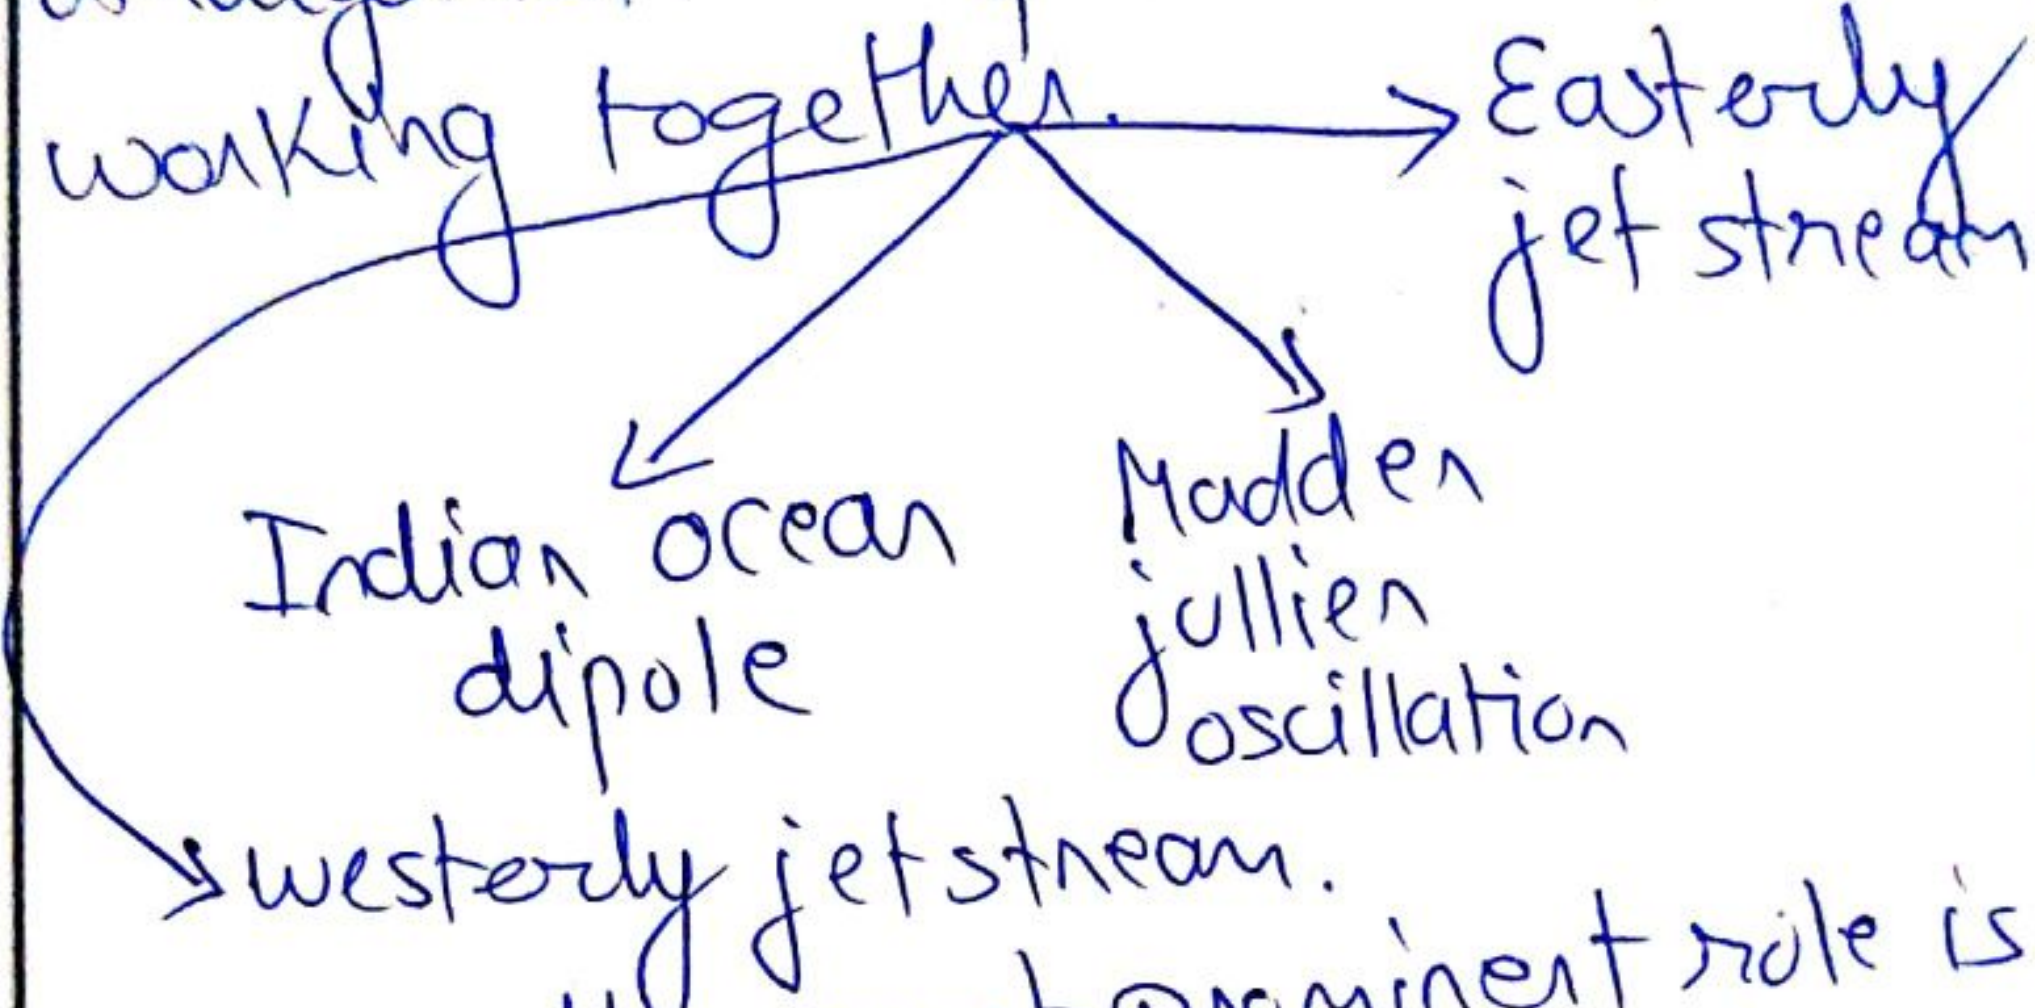 working together.
Easterly
jet stream
Indian ocean
dipole
Madden
jullien
oscillation
westerly jet stream.
prominent role is